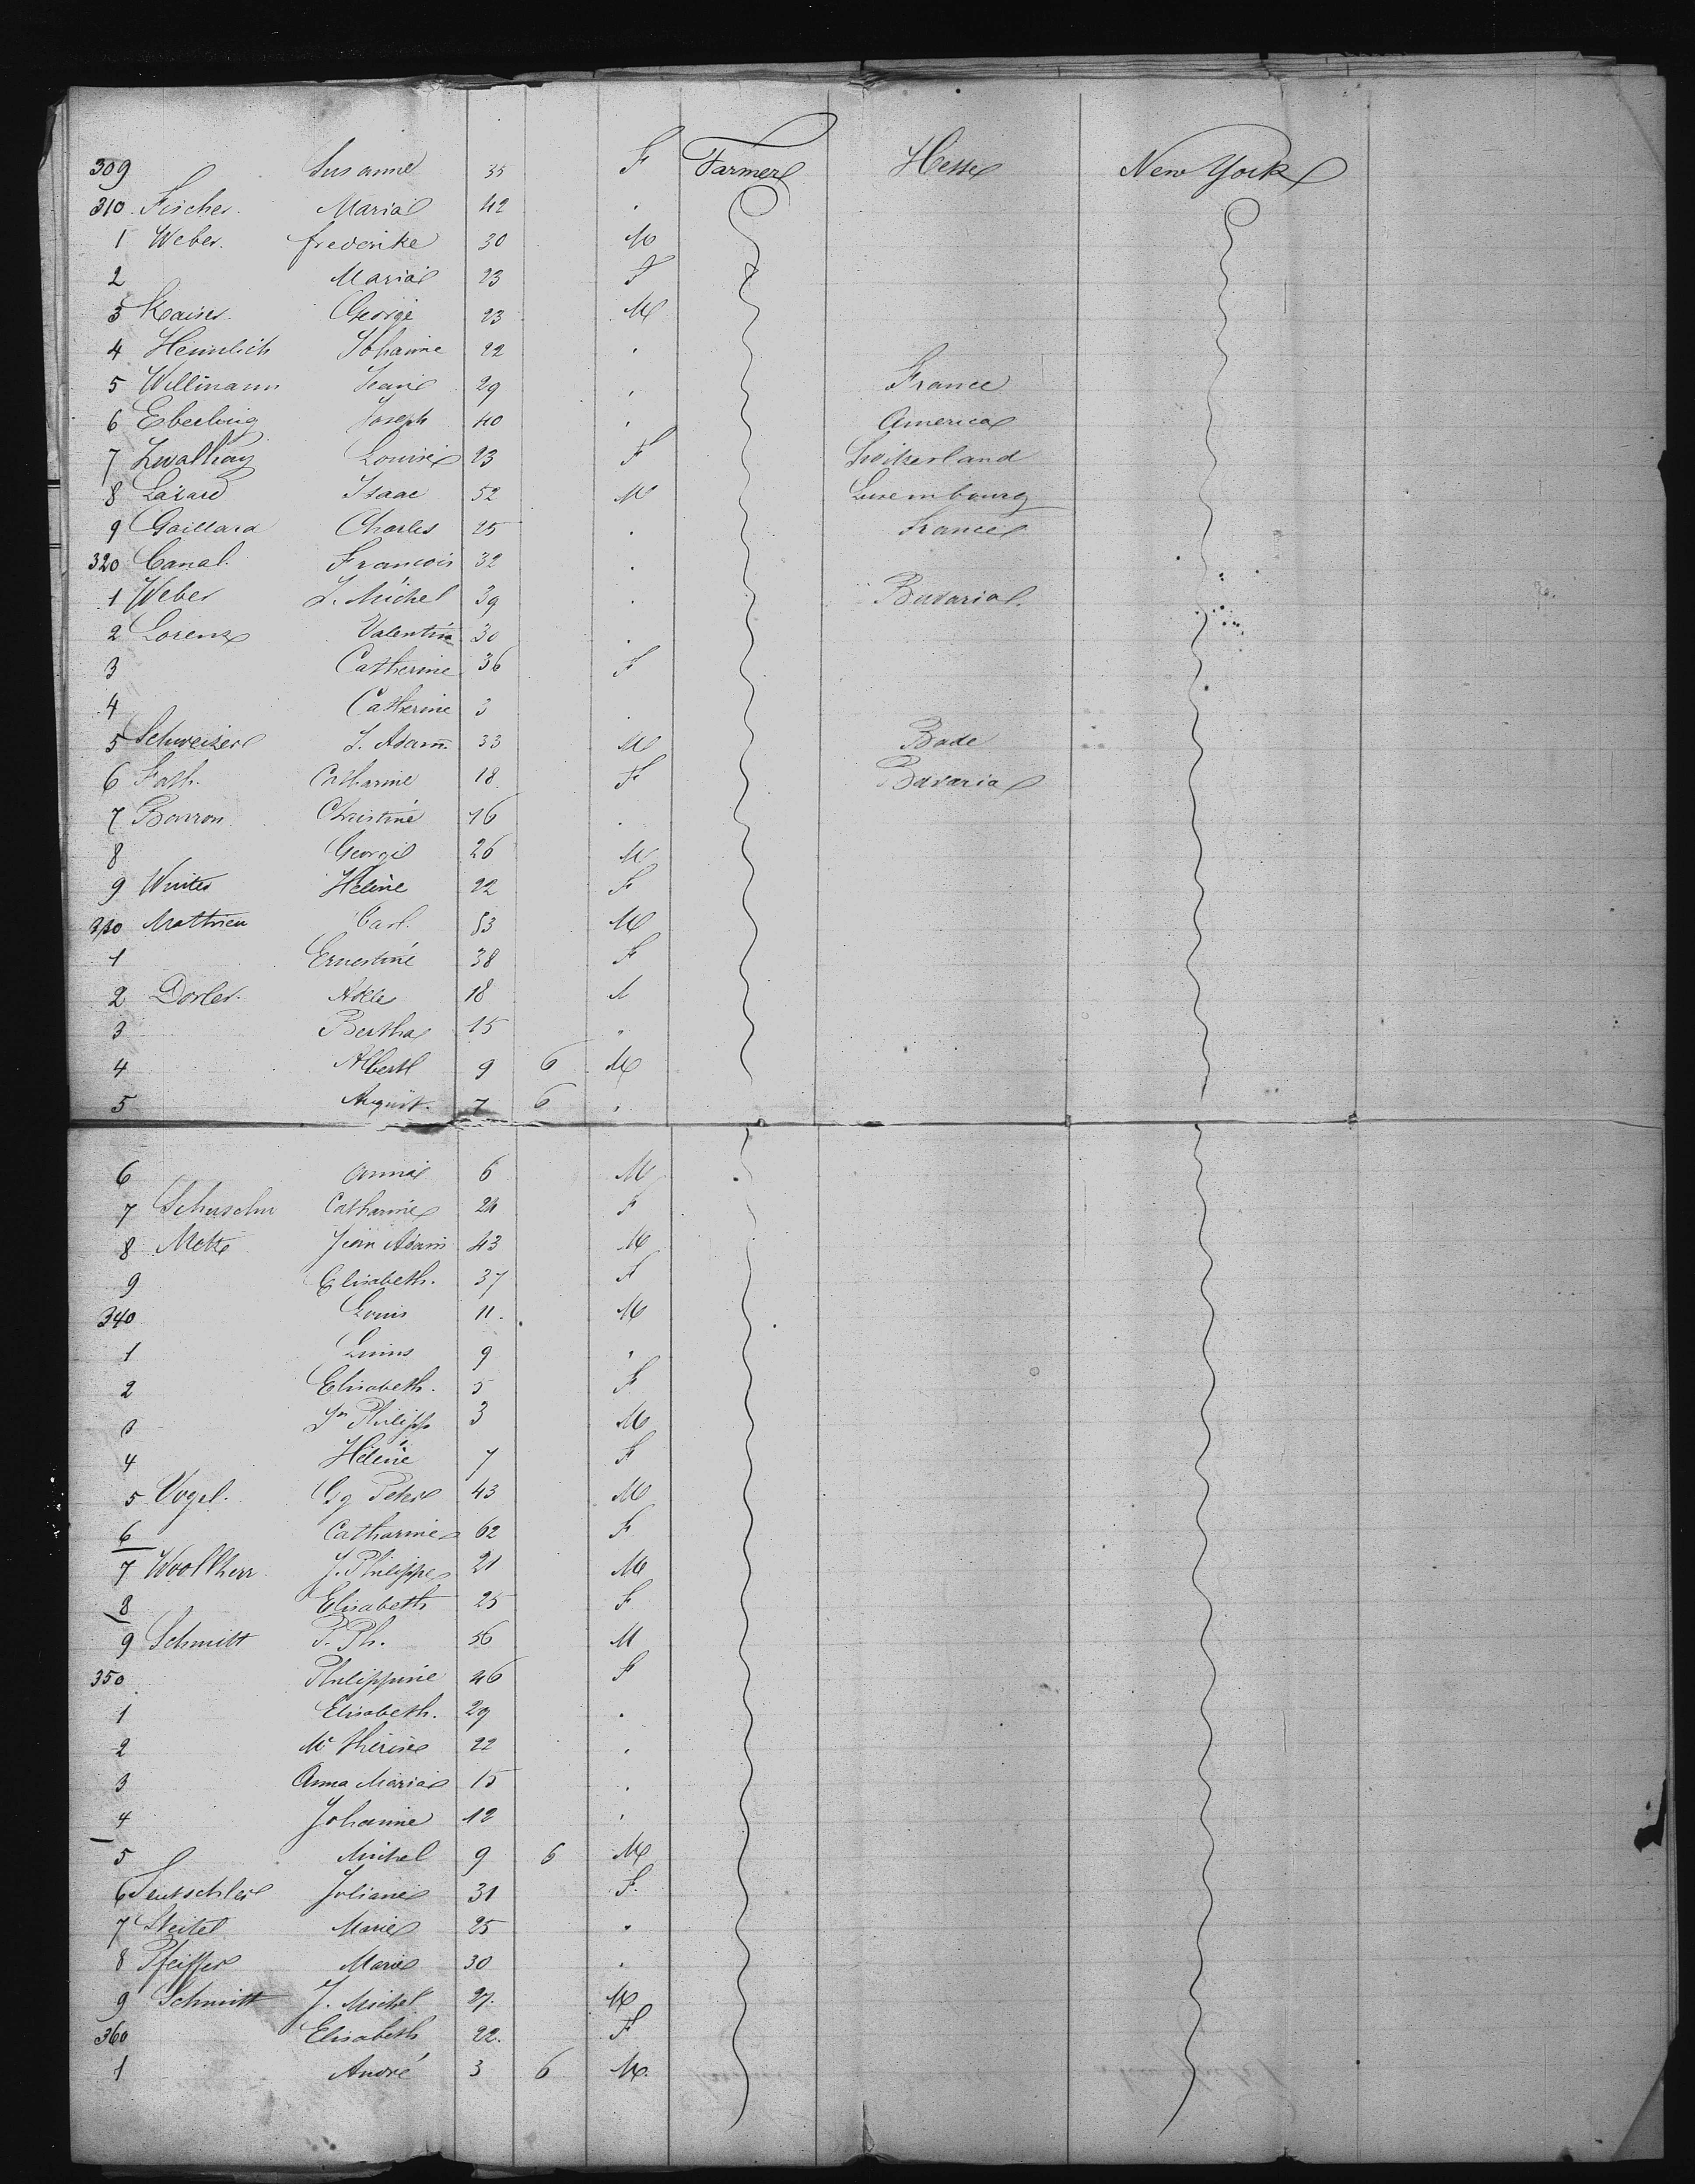 309 Susanne 35 F Farmer Hesse New York
310 Fischer Maria 42 "
1 Weber frederike 30 M
2 Maria 23 F
3 Kaiser George 23 M
4 Heimlich Johanne 22 "
5 Willmann Jean 29 " France
6 Eberling Joseph 40 " America
7 Louise 23 F Switzerland
8 Lazard Isaac 52 M Luxembourg
9 Gaillard Charles 25 " France
320 Canal Francois 32 "
1 Weber J. Michel 39 " Bavaria
2 Lorenz Valentin 30 "
3 Catherine 36 F
4 Catherine 3 "
5 Schweizer J. Adam 33 M Bade
6 Fath Catharine 18 F Bavaria
7 Barron Christine 16 "
8 George 26 M
9 Winter Helène 22 F
330 Mathieu Carl 53 M
1 Ernestine 38 F
2 Dorler Adele 18
3 Bertha 15 "
4 Albert 9 6 M
5 August 7 6 "
6 Anna 6 M
7 Catharine 24 F
8 Jean Adam 43 M
9 Elisabeth. 37 F
340 Louis 11 M
1 9 "
2 Elisabeth. 5 F
3 Jn Philipp 3 M
4 Hélène 7 F
5 Vogel. Gg Peter 43 M
6 Catharine 62 F
7 Woolherr J. Philippe 21 M
8 Elisabeth 25 F
9 Schmitt P. Ph. 56 M
350 Philippine 46 F
1 Elisabeth. 29 "
2 Mc Therese 22 "
3 Anna Maria 15 "
4 Johanne 12 "
5 Michel 9 6 M
6 Juliane 31 F.
7 Steitel Marie 25 "
8 Pfeiffer Marie 30 "
9 Schmitt J. Michel 27. M
360 Elisabeth 22. F
1 André 3 6 M.